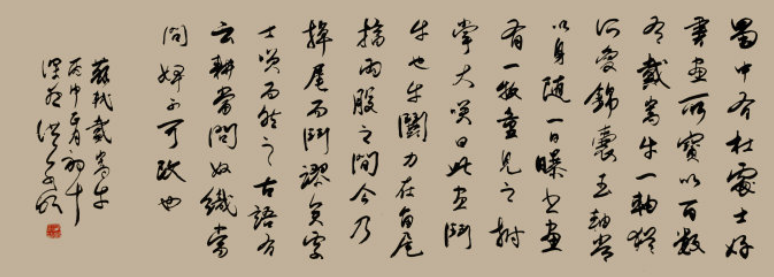 蜀中有杜處士好
書畫所寶以百數
有戴嵩牛一軸猶
所愛錦囊玉軸常
以身隨一日曝書畫
有一牧童見之拊
掌大笑曰此畫鬥
牛也牛鬭力在角尾
搐兩股之間今乃
掉尾而鬥謬矣處
士笑而然之古語有
云耕當問奴織當
問婢不可改也
蘇軾戴嵩牛
丙申正月初十